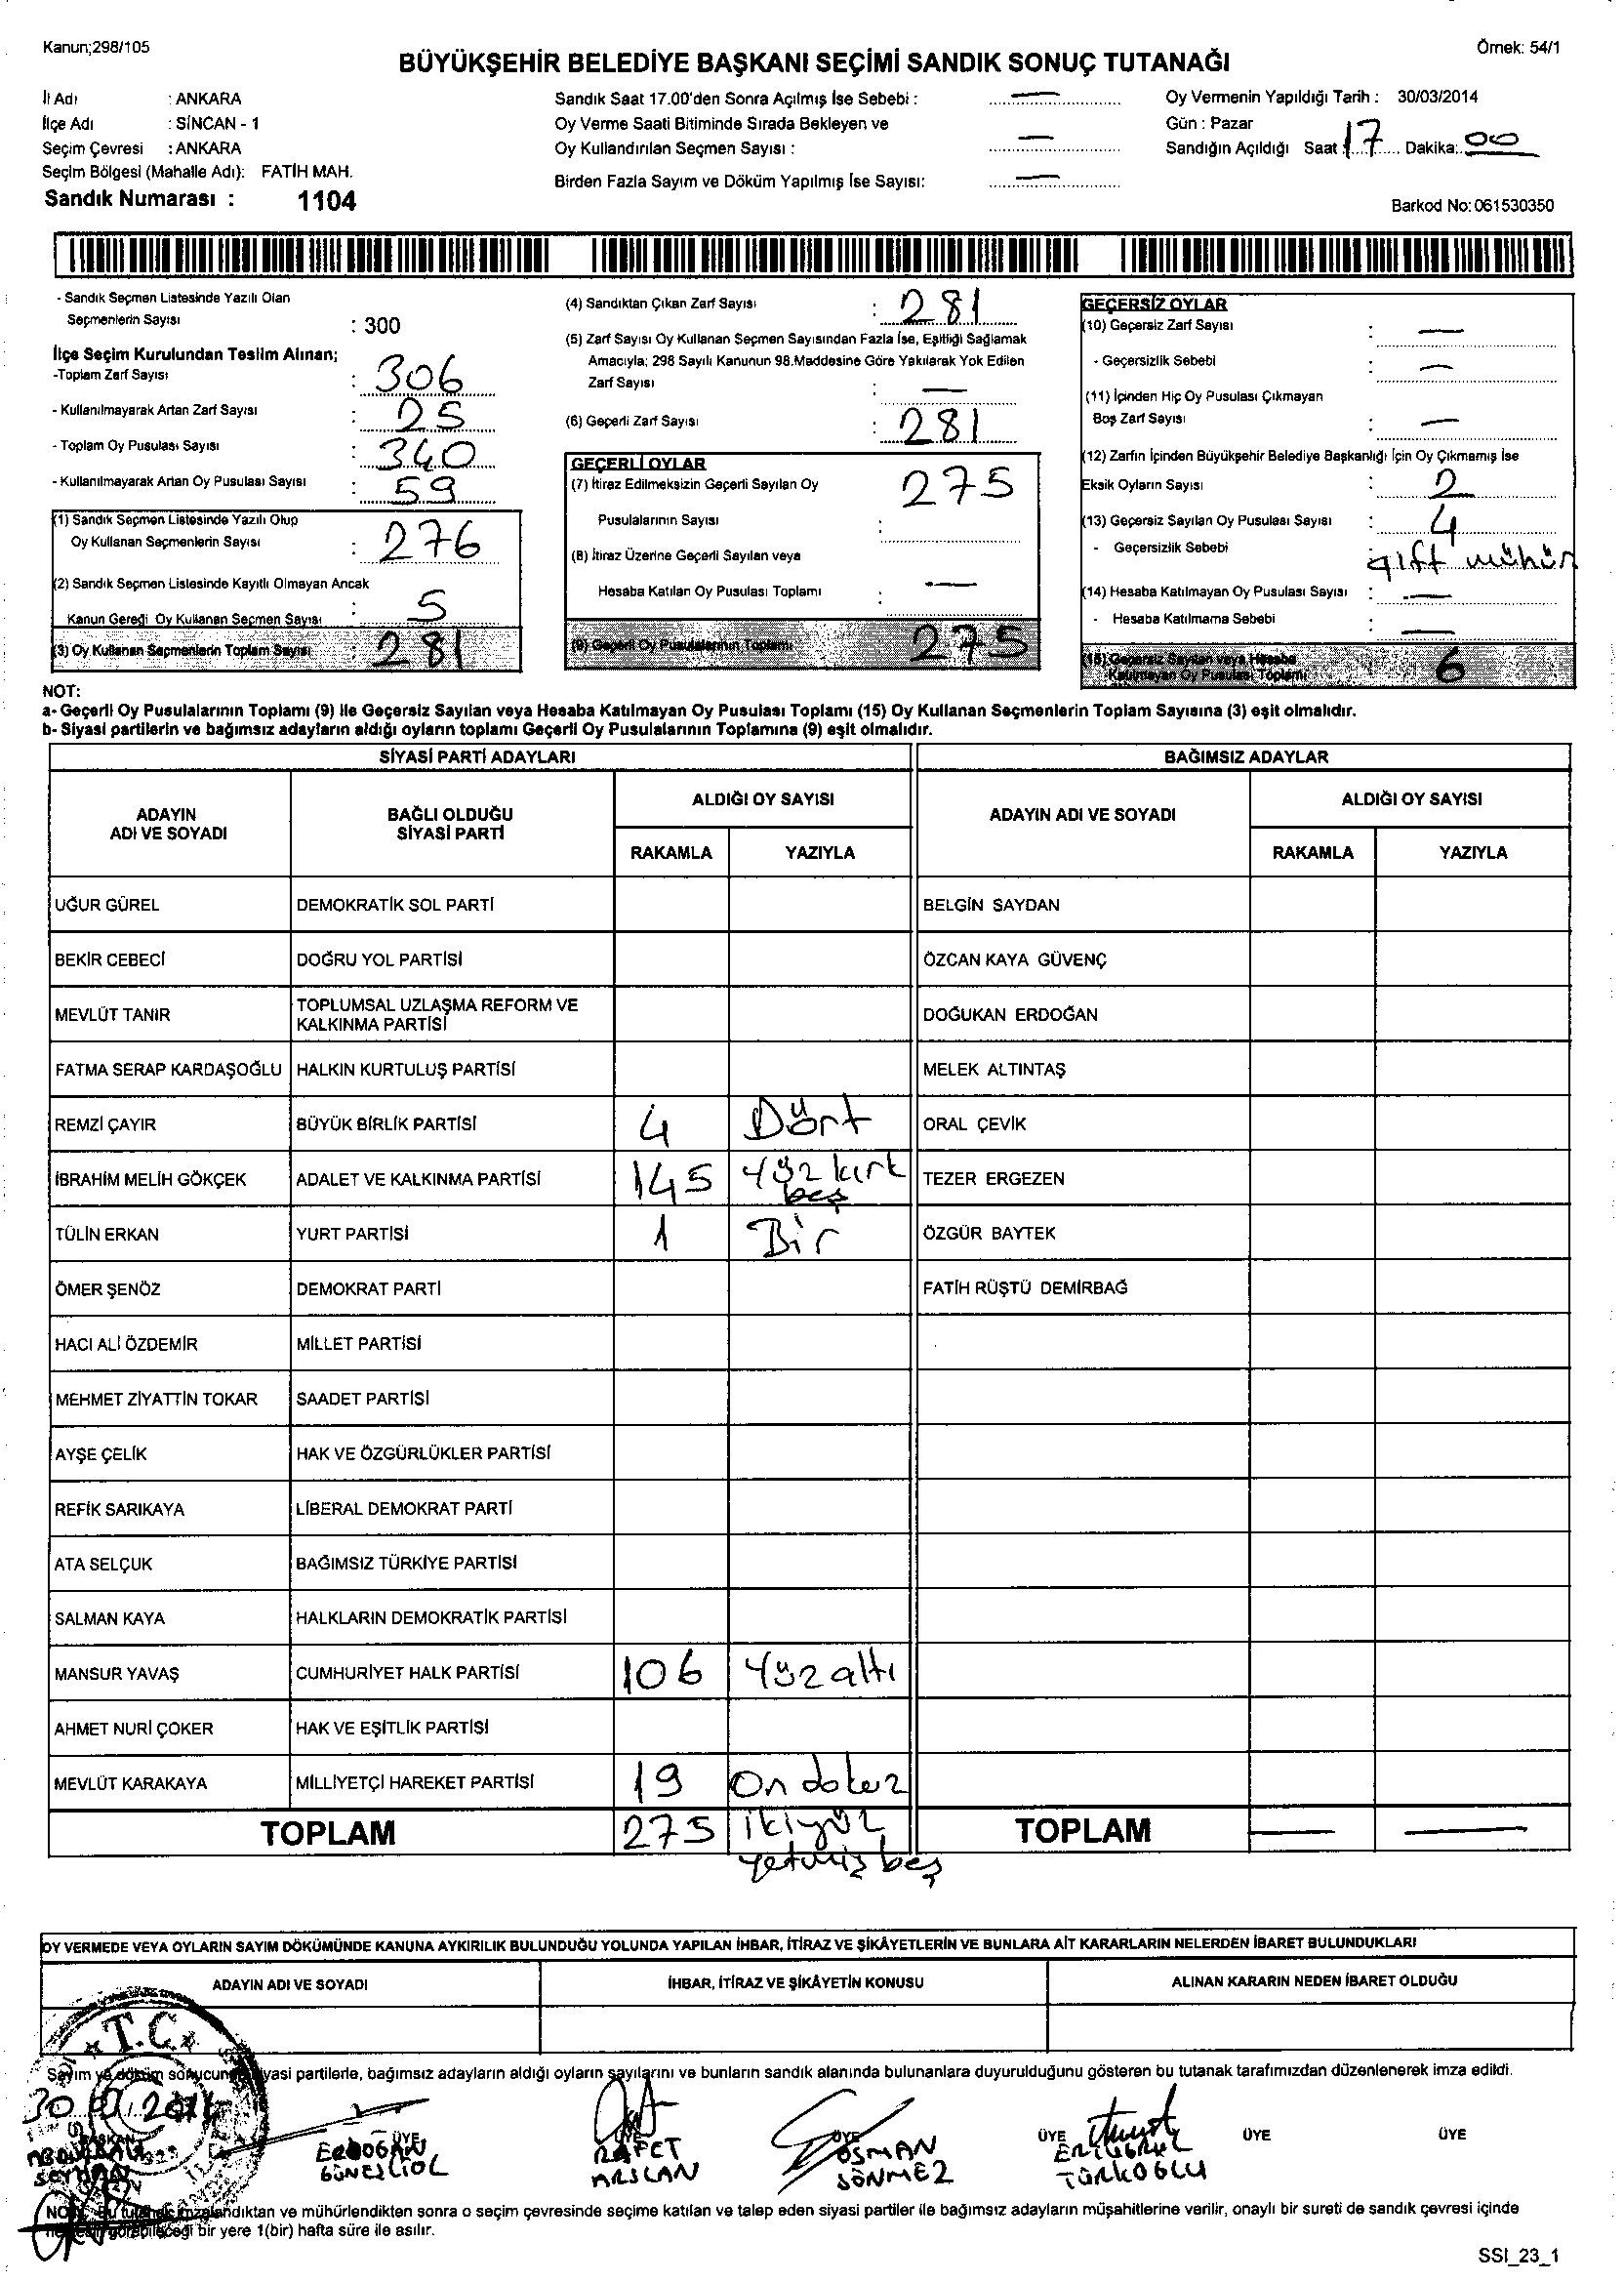 Kanun;298/105
Örnek: 54/1
BÜYÜKŞEHİR BELEDİYE BAŞKANI SEÇİMİ SANDIK SONUÇ TUTANAĞI
İl Adı : ANKARA
İlçe Adı : SİNCAN - 1
Seçim Çevresi : ANKARA
Seçim Bölgesi (Mahalle Adı): FATİH MAH.
Sandık Numarası : 1104
Sandık Saat 17.00'den Sonra Açılmış İse Sebebi : —
Oy Verme Saati Bitiminde Sırada Bekleyen ve
Oy Kullandırılan Seçmen Sayısı : —
Birden Fazla Sayım ve Döküm Yapılmış İse Sayısı: —
Oy Vermenin Yapıldığı Tarih : 30/03/2014
Gün : Pazar
Sandığın Açıldığı Saat : 17 Dakika: 00
Barkod No: 061530350
- Sandık Seçmen Listesinde Yazılı Olan
Seçmenlerin Sayısı : 300
İlçe Seçim Kurulundan Teslim Alınan;
-Toplam Zarf Sayısı : 306
- Kullanılmayarak Artan Zarf Sayısı : 25
- Toplam Oy Pusulası Sayısı : 340
- Kullanılmayarak Artan Oy Pusulası Sayısı : 59
(1) Sandık Seçmen Listesinde Yazılı Olup
Oy Kullanan Seçmenlerin Sayısı : 276
(2) Sandık Seçmen Listesinde Kayıtlı Olmayan Ancak
Kanun Gereği Oy Kullanan Seçmen Sayısı : 5
(3) Oy Kullanan Seçmenlerin Toplam Sayısı : 281
(4) Sandıktan Çıkan Zarf Sayısı : 281
(5) Zarf Sayısı Oy Kullanan Seçmen Sayısından Fazla İse, Eşitliği Sağlamak
Amacıyla; 298 Sayılı Kanunun 98.Maddesine Göre Yakılarak Yok Edilen
Zarf Sayısı : —
(6) Geçerli Zarf Sayısı : 281
GEÇERLİ OYLAR
(7) İtiraz Edilmeksizin Geçerli Sayılan Oy
Pusulalarının Sayısı : 275
(8) İtiraz Üzerine Geçerli Sayılan veya
Hesaba Katılan Oy Pusulası Toplamı : —
(9) Geçerli Oy Pusulalarının Toplamı 275
GEÇERSİZ OYLAR
(10) Geçersiz Zarf Sayısı : —
- Geçersizlik Sebebi : —
(11) İçinden Hiç Oy Pusulası Çıkmayan
Boş Zarf Sayısı : —
(12) Zarfın İçinden Büyükşehir Belediye Başkanlığı İçin Oy Çıkmamış İse
Eksik Oyların Sayısı : 2
(13) Geçersiz Sayılan Oy Pusulası Sayısı : 4
- Geçersizlik Sebebi : çift mühür
(14) Hesaba Katılmayan Oy Pusulası Sayısı : —
- Hesaba Katılmama Sebebi —
(15) Geçersiz Sayılan veya Hesaba
Katılmayan Oy Pusulası Toplamı 6
NOT:
a- Geçerli Oy Pusulalarının Toplamı (9) ile Geçersiz Sayılan veya Hesaba Katılmayan Oy Pusulası Toplamı (15) Oy Kullanan Seçmenlerin Toplam Sayısına (3) eşit olmalıdır.
b- Siyasi partilerin ve bağımsız adayların aldığı oyların toplamı Geçerli Oy Pusulalarının Toplamına (9) eşit olmalıdır.
SİYASİ PARTİ ADAYLARI
BAĞIMSIZ ADAYLAR
ADAYIN
ADI VE SOYADI
BAĞLI OLDUĞU
SİYASİ PARTİ
ALDIĞI OY SAYISI
RAKAMLA YAZIYLA
ADAYIN ADI VE SOYADI
ALDIĞI OY SAYISI
RAKAMLA YAZIYLA
UĞUR GÜREL DEMOKRATİK SOL PARTİ BELGİN SAYDAN
BEKİR CEBECİ DOĞRU YOL PARTİSİ ÖZCAN KAYA GÜVENÇ
MEVLÜT TANIR TOPLUMSAL UZLAŞMA REFORM VE
KALKINMA PARTİSİ DOĞUKAN ERDOĞAN
FATMA SERAP KARDAŞOĞLU HALKIN KURTULUŞ PARTİSİ MELEK ALTINTAŞ
REMZİ ÇAYIR BÜYÜK BİRLİK PARTİSİ 4 Dört ORAL ÇEVİK
İBRAHİM MELİH GÖKÇEK ADALET VE KALKINMA PARTİSİ 145 Yüz kırk
beş TEZER ERGEZEN
TÜLİN ERKAN YURT PARTİSİ 1 Bir ÖZGÜR BAYTEK
ÖMER ŞENÖZ DEMOKRAT PARTİ FATİH RÜŞTÜ DEMİRBAĞ
HACI ALİ ÖZDEMİR MİLLET PARTİSİ
MEHMET ZİYATTİN TOKAR SAADET PARTİSİ
AYŞE ÇELİK HAK VE ÖZGÜRLÜKLER PARTİSİ
REFİK SARIKAYA LİBERAL DEMOKRAT PARTİ
ATA SELÇUK BAĞIMSIZ TÜRKİYE PARTİSİ
SALMAN KAYA HALKLARIN DEMOKRATİK PARTİSİ
MANSUR YAVAŞ CUMHURİYET HALK PARTİSİ 106 Yüz altı
AHMET NURİ ÇOKER HAK VE EŞİTLİK PARTİSİ
MEVLÜT KARAKAYA MİLLİYETÇİ HAREKET PARTİSİ 19 On dokuz
TOPLAM 275 ikiyüz
yetmiş beş
TOPLAM — —
OY VERMEDE VEYA OYLARIN SAYIM DÖKÜMÜNDE KANUNA AYKIRILIK BULUNDUĞU YOLUNDA YAPILAN İHBAR, İTİRAZ VE ŞİKÂYETLERİN VE BUNLARA AİT KARARLARIN NELERDEN İBARET BULUNDUKLARI
ADAYIN ADI VE SOYADI İHBAR, İTİRAZ VE ŞİKÂYETİN KONUSU ALINAN KARARIN NEDEN İBARET OLDUĞU
T.C.
Sayım ve döküm sonucunda siyasi partilerle, bağımsız adayların aldığı oyların sayılarını ve bunların sandık alanında bulunanlara duyurulduğunu gösteren bu tutanak tarafımızdan düzenlenerek imza edildi.
BAŞKAN ÜYE ÜYE ÜYE ÜYE ÜYE
ERDOĞAN RAFET OSMAN ERTUĞRUL
ARSLAN SÖNMEZ TÜRKOĞLU
NOT: Bu tutanak imzalandıktan ve mühürlendikten sonra o seçim çevresinde seçime katılan ve talep eden siyasi partiler ile bağımsız adayların müşahitlerine verilir, onaylı bir sureti de sandık çevresi içinde
görebileceği bir yere 1(bir) hafta süre ile asılır.
SSI_23_1